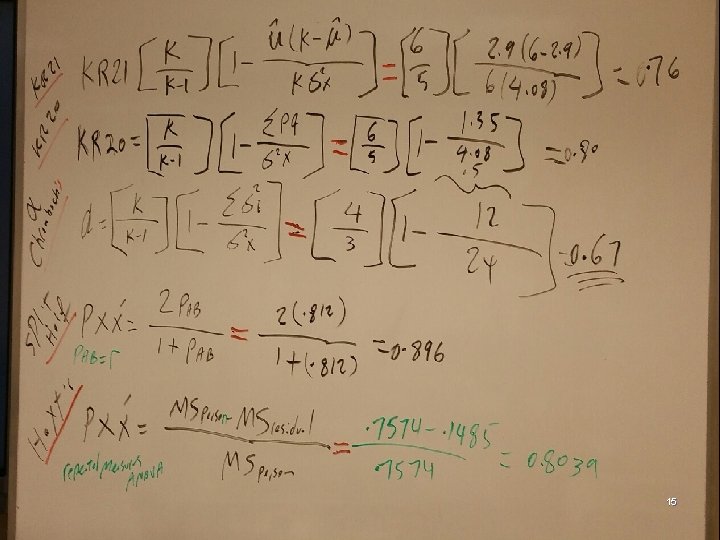 KR21 KR21 [K/K-1][1- û(K-μ̂)/Kσ²x] = [6/5][2.9(6-2.9)/6(4.08)] = 0.76
KR20 KR20= [K/K-1][1- ΣPq/σ²x] = [6/5][1- 1.35/4.08] =0.80
.5
α Chronbach's α= [K/K-1][1- Σσ²i/σ²x] = [4/3][1- 12/24] =0.67
SPLIT Half PXX́= 2PAB/1+PAB = 2(.812)/1+(.812) =0.896
PAB=r
HoYT's PXX́= MSperson-MSresidual/MSperson = .7574-.1485/.7574 = 0.8039
repeated measures ANOVA
15